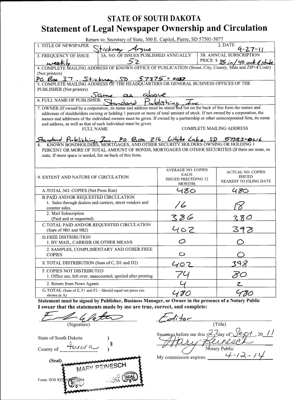 STATE OF SOUTH DAKOTA
Statement of Legal Newspaper Ownership and Circulation
Return to: Secretary of State, 500 E. Capitol, Pierre, SD 57501-5077
1. TITLE OF NEWSPAPER Stickney Argus 2. DATE 9-27-11
3. FREQUENCY OF ISSUE weekly 3A. NO. OF ISSUES PUBLISHED ANNUALLY 52 3B. ANNUAL SUBSCRIPTION PRICE
4. COMPLETE MAILING ADDRESS OF KNOWN OFFICE OF PUBLICATION (Street, City, County, State and ZIP+4 Code) (Not printers)
PO Box 27 Stickney SD 57375
5. COMPLETE MAILING ADDRESS OF THE HEADQUARTERS OF GENERAL BUSINESS OFFICES OF THE PUBLISHER (Not printers)
Same as above
6. FULL NAME OF PUBLISHER Standard Publishing Inc.
7. OWNER (If owned by a corporation, its name and address must be stated and also on the back of this form the names and addresses of stockholders owning or holding 1 percent or more of total amount of stock. If not owned by a corporation, the names and addresses of the individual owners must be given. If owned by a partnership or other unincorporated firm, its name and address, as well as that of each individual must be given.
FULL NAME COMPLETE MAILING ADDRESS
Standard Publishing Inc PO Box 216, White Lake, SD
8. KNOWN BONDHOLDERS, MORTGAGES, AND OTHER SECURITY HOLDERS OWNING OR HOLDING 1 PERCENT OR MORE OF TOTAL AMOUNT OF BONDS, MORTGAGES OR OTHER SECURITIES (If there are none, so state. If more space is needed, list on back of this form).
9. EXTENT AND NATURE OF CIRCULATION
AVERAGE NO. COPIES EACH ISSUE DURING PRECEDING 12 MONTHS
ACTUAL NO. COPIES ISSUED NEAREST TO FILING DATE
A. TOTAL NO. COPIES (Net Press Run) 480 480
B. PAID AND/OR REQUESTED CIRCULATION
1. Sales through dealers and carriers, street vendors and counter sales. 16 18
2. Mail Subscription (Paid and or requested) 386 380
C. TOTAL PAID AND/OR REQUESTED CIRCULATION (Sum of 9B1 and 9B2) 402 398
D. FREE DISTRIBUTION
1. BY MAIL, CARRIER OR OTHER MEANS 0 0
2. SAMPLES, COMPLIMENTARY AND OTHER FREE COPIES 0 0
E. TOTAL DISTRIBUTION (Sum of C, D1 and D2) 402 398
F. COPIES NOT DISTRIBUTED
1. Office use, left over, unaccounted, spoiled after printing 74 80
2. Return from News Agents 4 2
G. TOTAL (Sum of E, F1 and F2 - Should equal net press run shown in A) 480 480
Statement must be signed by Publisher, Business Manager, or Owner in the presence of a Notary Public
I swear that the statements made by me are true, correct, and complete:
Editor
(Signature) (Title)
State of South Dakota )
County of )
Sworn to before me this 27 day of Sept, 2011
Mary Reinesch
Notary Public
(Seal)
MARY REINESCH
My commission expires: 4-12-14